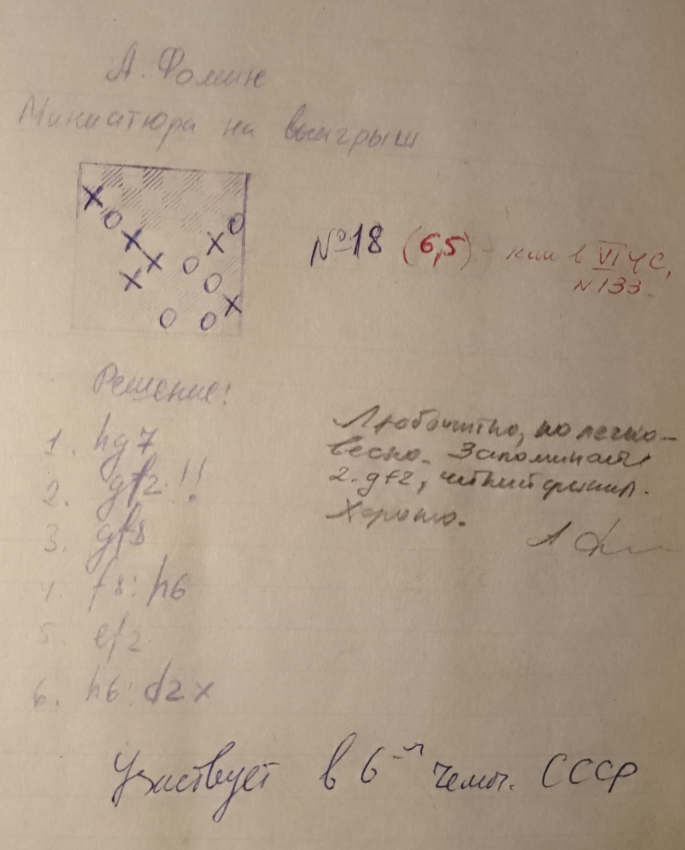 А. Фомин
Миниатюра на выигрыш
№18 (6,5) - в VI ЧС,
N 133.
Решение:
1. hg7
2. gf2!!
3. gf8
4. f8:h6
5. ef2
6. h6:d2x
Любопытно, но легко-
весно. Запоминается
2. gf2, четкий финал.
Хорошо.
Участвует в 6-м чемп. СССР